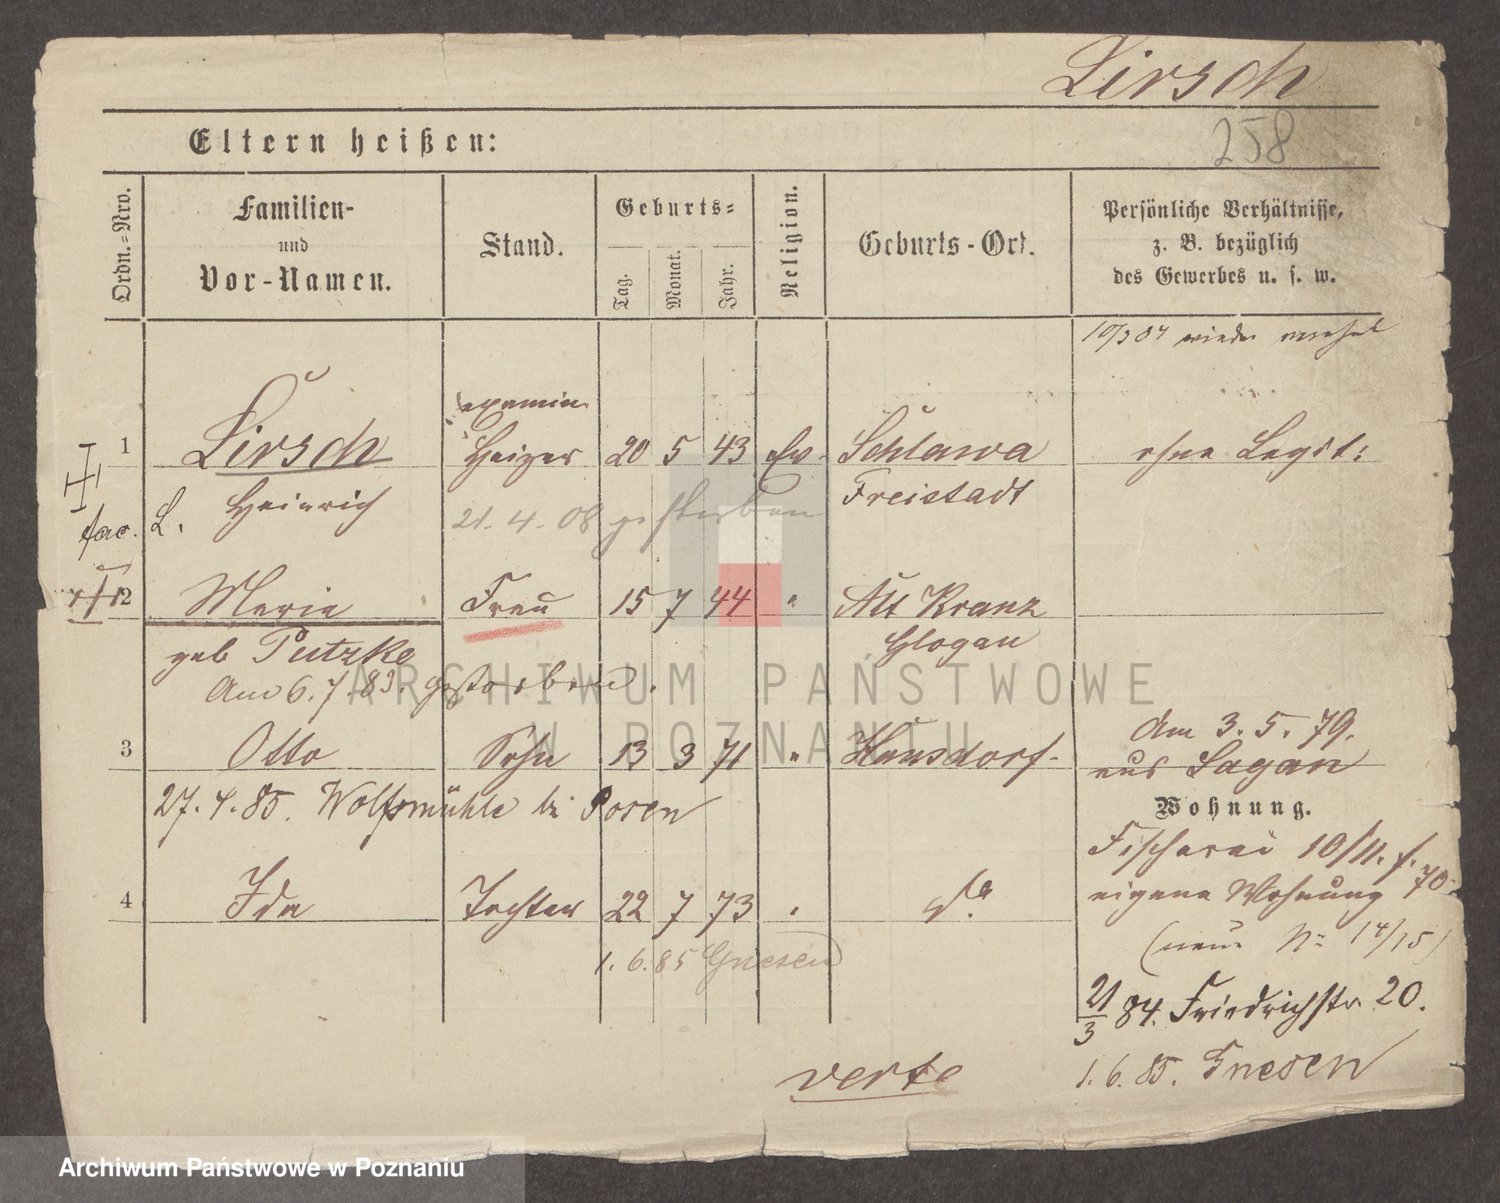 Lirsch
258
Eltern heißen:
Ordn.-Nro.
Familien-
und
Vor-Namen.
Stand.
Geburts-
Tag.
Monat.
Jahr.
Religion.
Geburts-Ort.
Persönliche Verhältnisse,
z. B. bezüglich
des Gewerbes u. s. w.
wieder
1 Lirsch examin. Heizer 20 5 43 Ev. Schlawa ohne Legit:
L. Heinrich 21.4.08 gestorben Freistadt
2 Marie Frau 15 7 44 " Alt Kranz
geb Putzke Glogau
Am 6.7.83. gestorben.
3 Otto Sohn 13 3 71 " Hansdorf
Am 3.5.79.
aus Sagan
27.4.85. Wolfsmühle bei Posen
Wohnung.
Fischerei 10/11. f. 70.
eigene Wohnung
4 Ida Tochter 22 7 73 " do
(neue No 14/15)
1.6.85 Gnesen
21/3 84. Friedrichstr. 20.
1.6.85. Gnesen
verte
ARCHIWUM PAŃSTWOWE
W POZNANIU
Archiwum Państwowe w Poznaniu